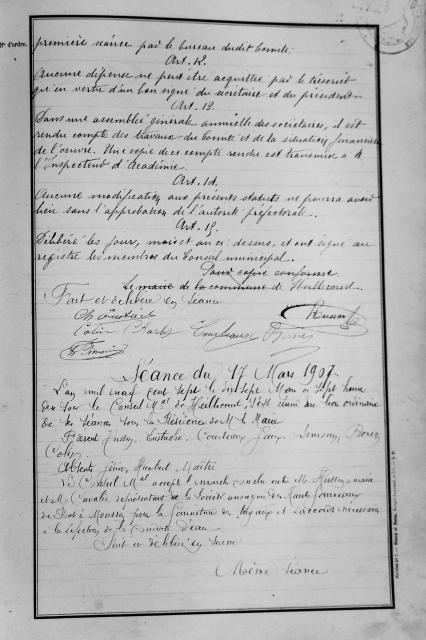 N° d'ordre.
première séance par le bureau dudit Comité.
Art. 12.
Aucune dépense ne peut être acquittée par le trésorier
qu'en vertu d'un bon signé du secrétaire et du président.
Art. 13.
Dans une assemblée générale annuelle des sociétaires, il est
rendu compte des travaux du Comité et de la situation financière
de l'oeuvre. Une copie de ce compte rendu est transmise à M
l'Inspecteur d'Académie.
Art. 14.
Aucune modification aux présents statuts ne pourra avoir
lieu sans l'approbation de l'autorité préfectorale.
Art. 15.
Délibéré les jour, mois et an ci-dessus, et ont signé au
registre les membres du Conseil municipal.
Pour copie conforme
Le maire de la commune de
Fait et délibéré en séance
Séance du 17 Mars 1907.
L'an mil neuf cent sept le dix sept Mars à sept heures
du soir le Conseil Mal de s'est réuni au lieu ordinaire
de ses séances sous la Présidence de M. le Maire
Présents Eustache Courteaux
Colin
Absents
Le Conseil Mal accepte le marché conclu entre M. maire
et M. Cavalier représentant de la Société anonyme des Hauts fourneaux
de Pont à Mousson pour la fourniture des tuyaux et raccords nécessaires
à la réfection de la Conduite d'eau
Fait et délibéré en séance
Même séance